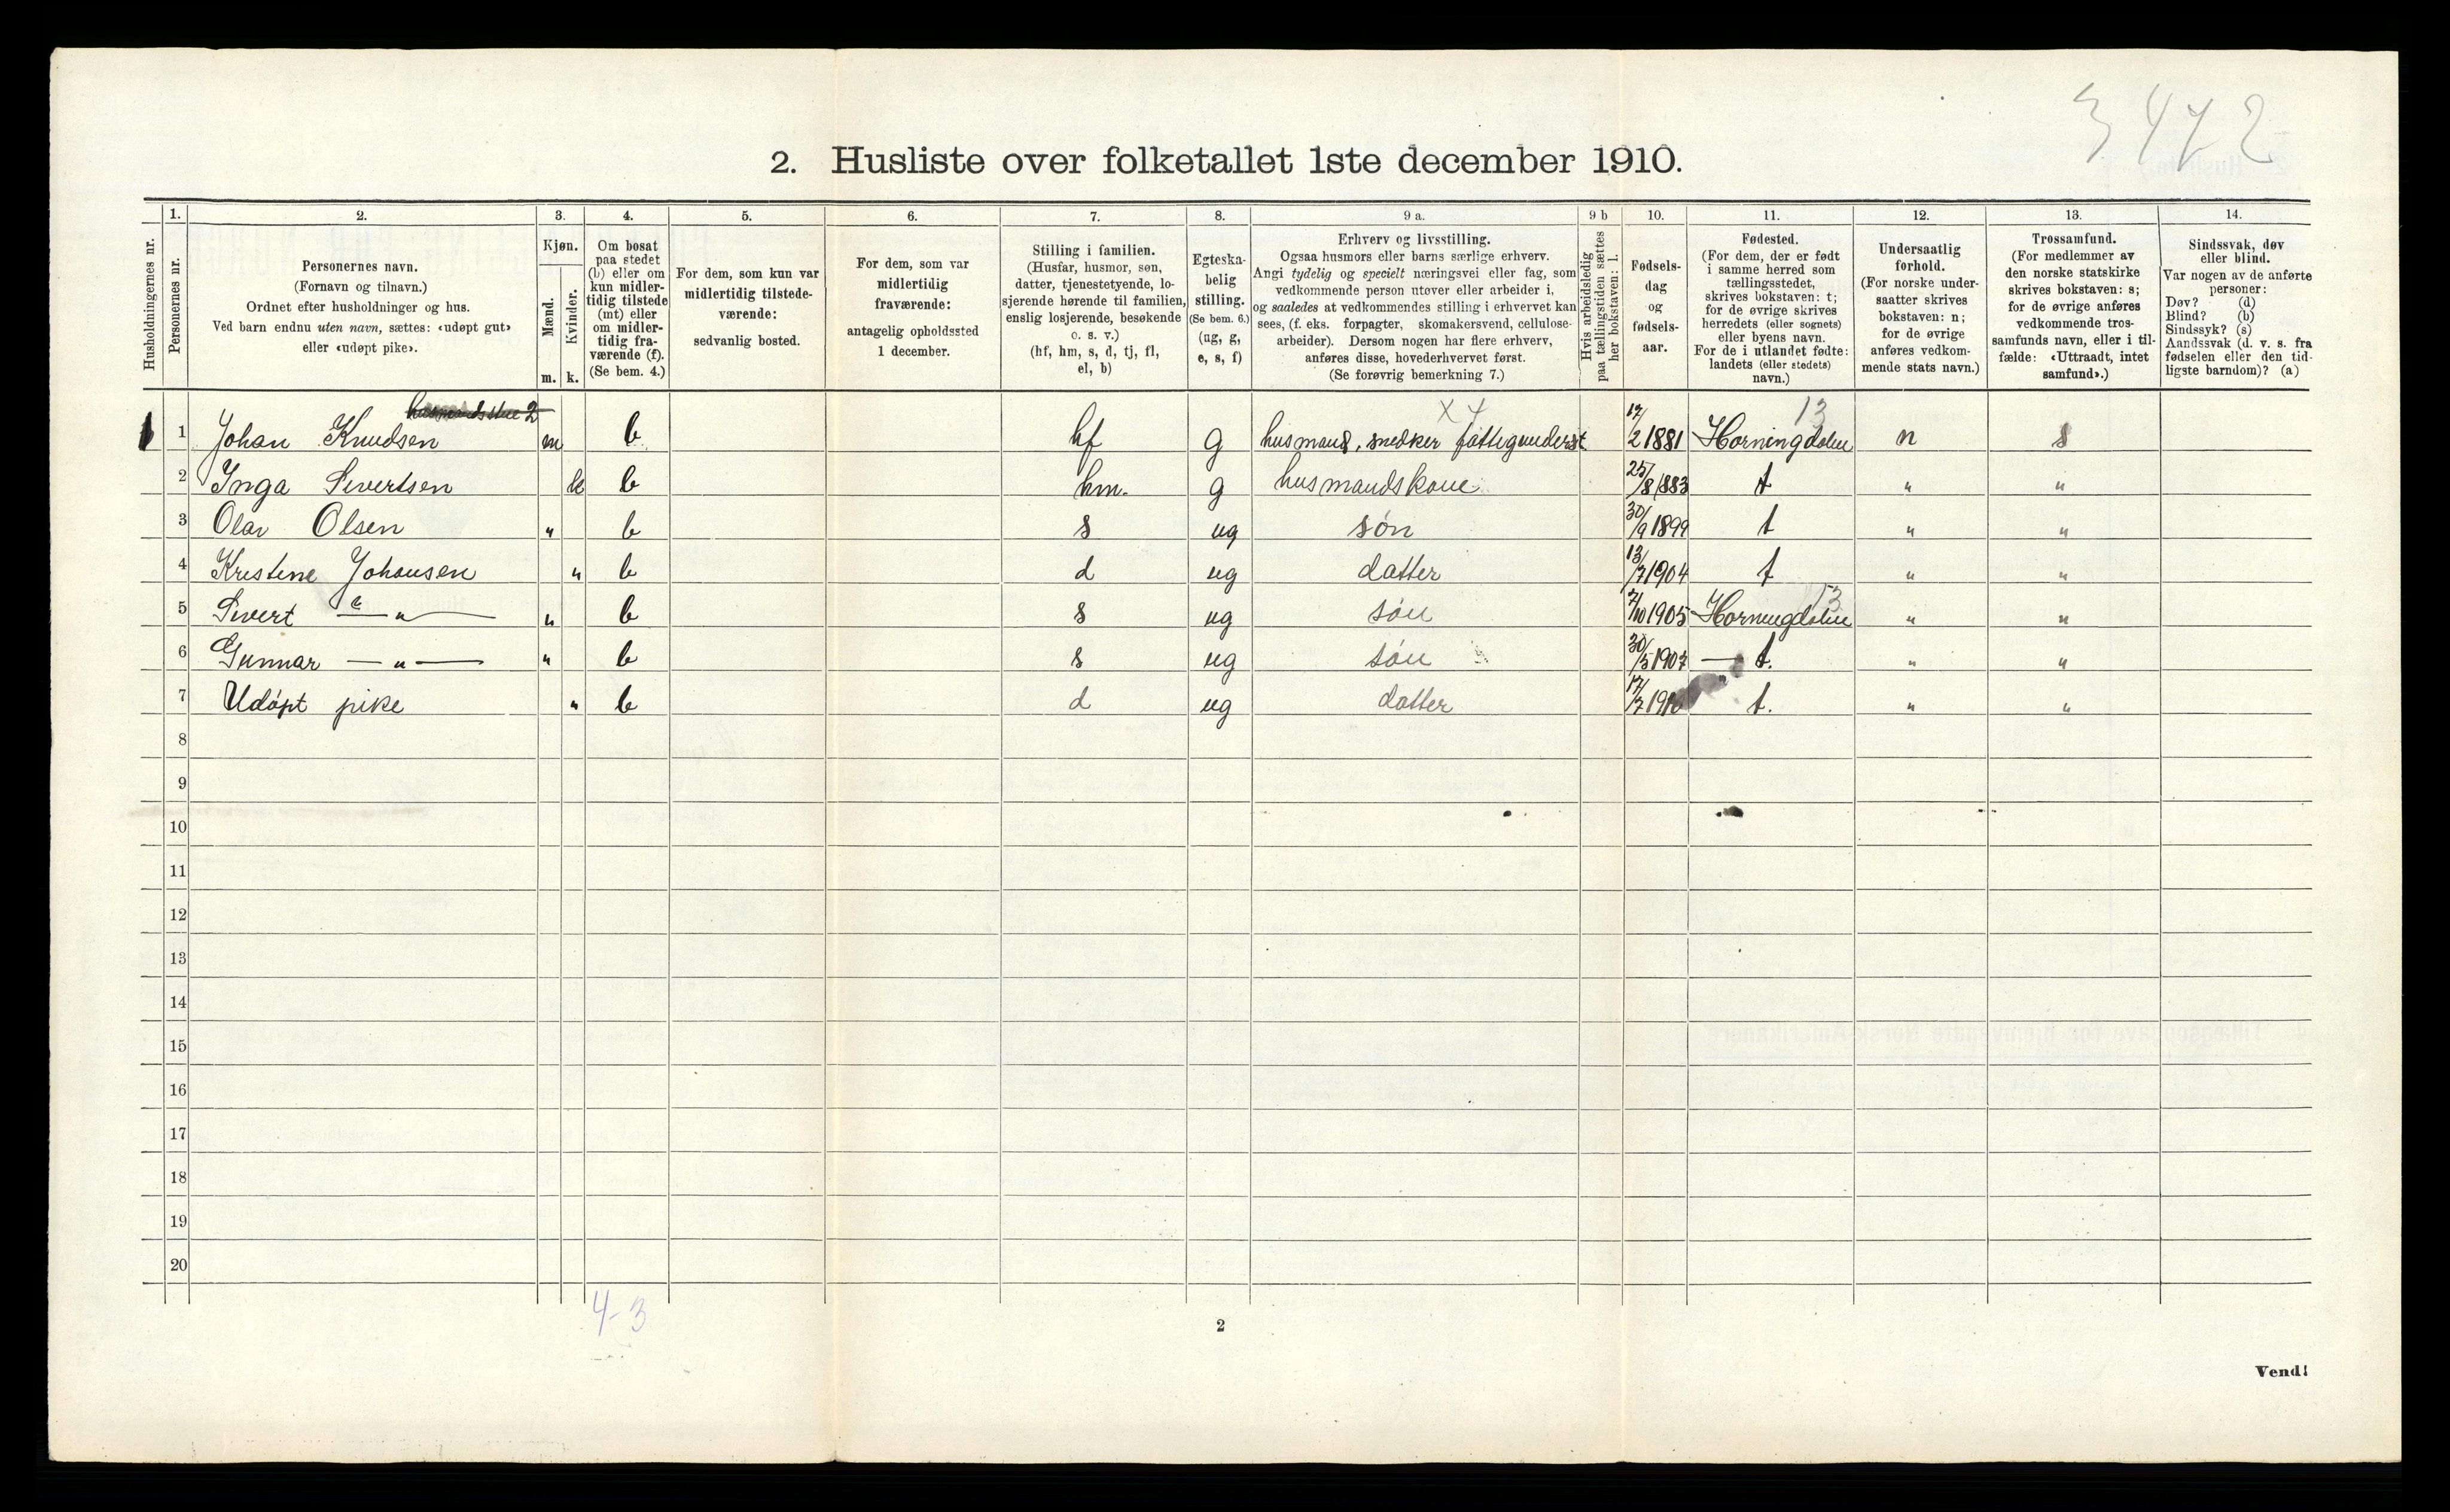 3472
2. Husliste over folketallet 1ste december 1910.
1. 2. 3. 4. 5. 6. 7. 8. 9 a. 9 b 10. 11. 12. 13. 14.
Husholdningernes nr.
Personernes nr.
Personernes navn.
(Fornavn og tilnavn.)
Ordnet efter husholdninger og hus.
Ved barn endnu uten navn, sættes: «udøpt gut»
eller «udøpt pike».
Kjøn.
Mænd.
Kvinder.
m. k.
Om bosat
paa stedet
(b) eller om
kun midler-
tidig tilstede
(mt) eller
om midler-
tidig fra-
værende (f).
(Se bem. 4.)
For dem, som kun var
midlertidig tilstede-
værende:
sedvanlig bosted.
For dem, som var
midlertidig
fraværende:
antagelig opholdssted
1 december.
Stilling i familien.
(Husfar, husmor, søn,
datter, tjenestetyende, lo-
sjerende hørende til familien,
enslig losjerende, besøkende
o. s. v.)
(hf, hm, s, d, tj, fl,
el, b)
Egteska-
belig
stilling.
(Se bem. 6.)
(ug, g,
e, s, f)
Erhverv og livsstilling.
Ogsaa husmors eller barns særlige erhverv.
Angi tydelig og specielt næringsvei eller fag, som
vedkommende person utøver eller arbeider i,
og saaledes at vedkommendes stilling i erhvervet kan
sees, (f. eks. forpagter, skomakersvend, cellulose-
arbeider). Dersom nogen har flere erhverv,
anføres disse, hovederhvervet først.
(Se forøvrig bemerkning 7.)
Hvis arbeidsledig
paa tællingstiden sættes
her bokstaven: l.
Fødsels-
dag
og
fødsels-
aar.
Fødested.
(For dem, der er født
i samme herred som
tællingsstedet,
skrives bokstaven: t;
for de øvrige skrives
herredets (eller sognets)
eller byens navn.
For de i utlandet fødte:
landets (eller stedets)
navn.)
Undersaatlig
forhold.
(For norske under-
saatter skrives
bokstaven: n;
for de øvrige
anføres vedkom-
mende stats navn.)
Trossamfund.
(For medlemmer av
den norske statskirke
skrives bokstaven: s;
for de øvrige anføres
vedkommende tros-
samfunds navn, eller i til-
fælde: «Uttraadt, intet
samfund».)
Sindssvak, døv
eller blind.
Var nogen av de anførte
personer:
Døv? (d)
Blind? (b)
Sindssyk? (s)
Aandssvak (d. v. s. fra
fødselen eller den tid-
ligste barndom)? (a)
husmandsstue 2 x 4 13
1 1 Johan Knudsen m b hf g husmand, snedker fattigunderst 17/2 1881 Horningdalen n s
2 Inga Sivertsen k b hm. g husmandskone 25/8 1883 t " "
3 Olav Olsen " b s ug søn 30/9 1899 t " "
4 Kristine Johansen " b d ug datter 13/7 1904 t " "
13
5 Sivert — " — " b s ug søn 7/10 1905 Horningdalen " "
6 Gunnar — " — " b s ug søn 30/5 1907 — t. " "
7 Udøpt pike " b d ug datter 17/7 1910 t. " "
8
9
10
11
12
13
14
15
16
17
18
19
20
4-3
2
Vend!